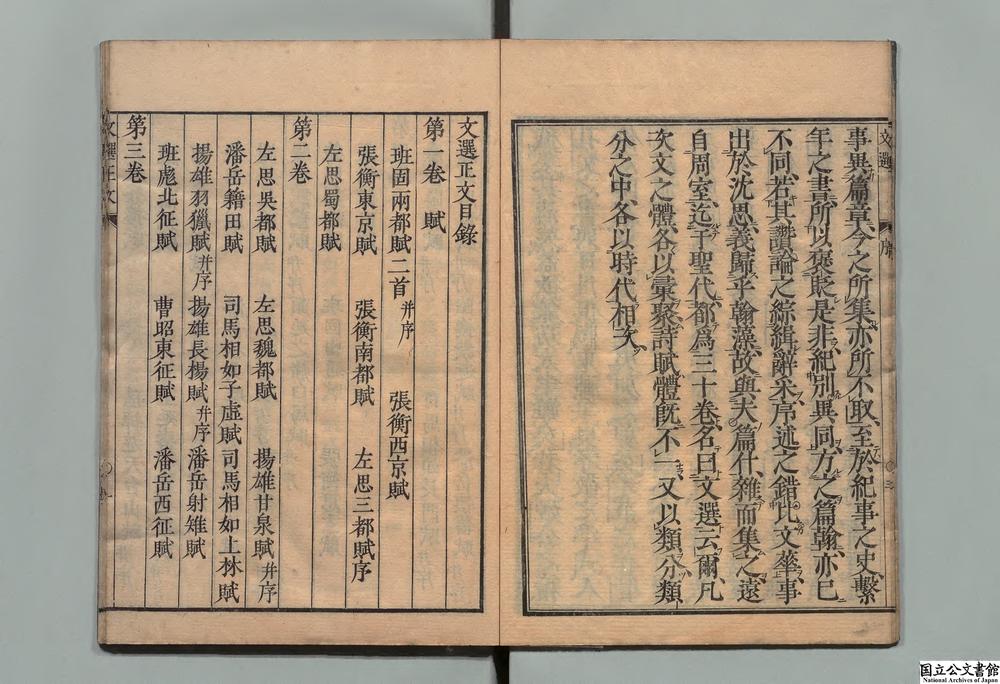 文選 序 三
事異篇章今之所集亦所不取至於紀事之史繫
年之書所以褒貶是非紀別異同方之篇翰亦已
不同若其讚論之綜緝辭采序述之錯比文華事
出於沈思義歸乎翰藻故與夫篇什雜而集之遠
自周室迄于聖代都爲三十卷名曰文選云爾凡
次文之體各以彙聚詩賦體旣不一又以類分類
分之中各以時代相次
文選正文目錄
第一卷 賦
班固兩都賦二首并序 張衡西京賦
張衡東京賦 張衡南都賦 左思三都賦序
左思蜀都賦
第二卷
左思吳都賦 左思魏都賦 揚雄甘泉賦并序
潘岳籍田賦 司馬相如子虛賦 司馬相如上林賦
揚雄羽獵賦并序 揚雄長楊賦并序 潘岳射雉賦
第三卷
班彪北征賦 曹昭東征賦 潘岳西征賦
文選正文
国立公文書館
National Archives of Japan